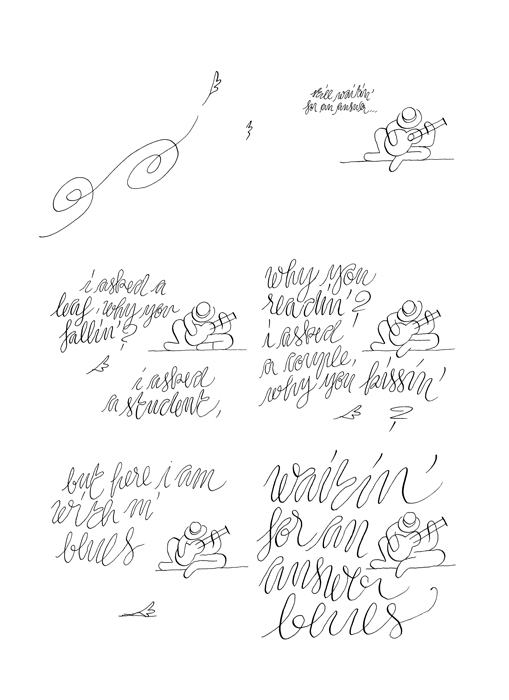 still waitin'
for an answer...
i asked a
leaf, why you
fallin'?
i asked
a student,
why you
readin'?
i asked
a couple,
why you kissin'
?
but here i am
with m'
blues
waitin'
for an
answer
blues